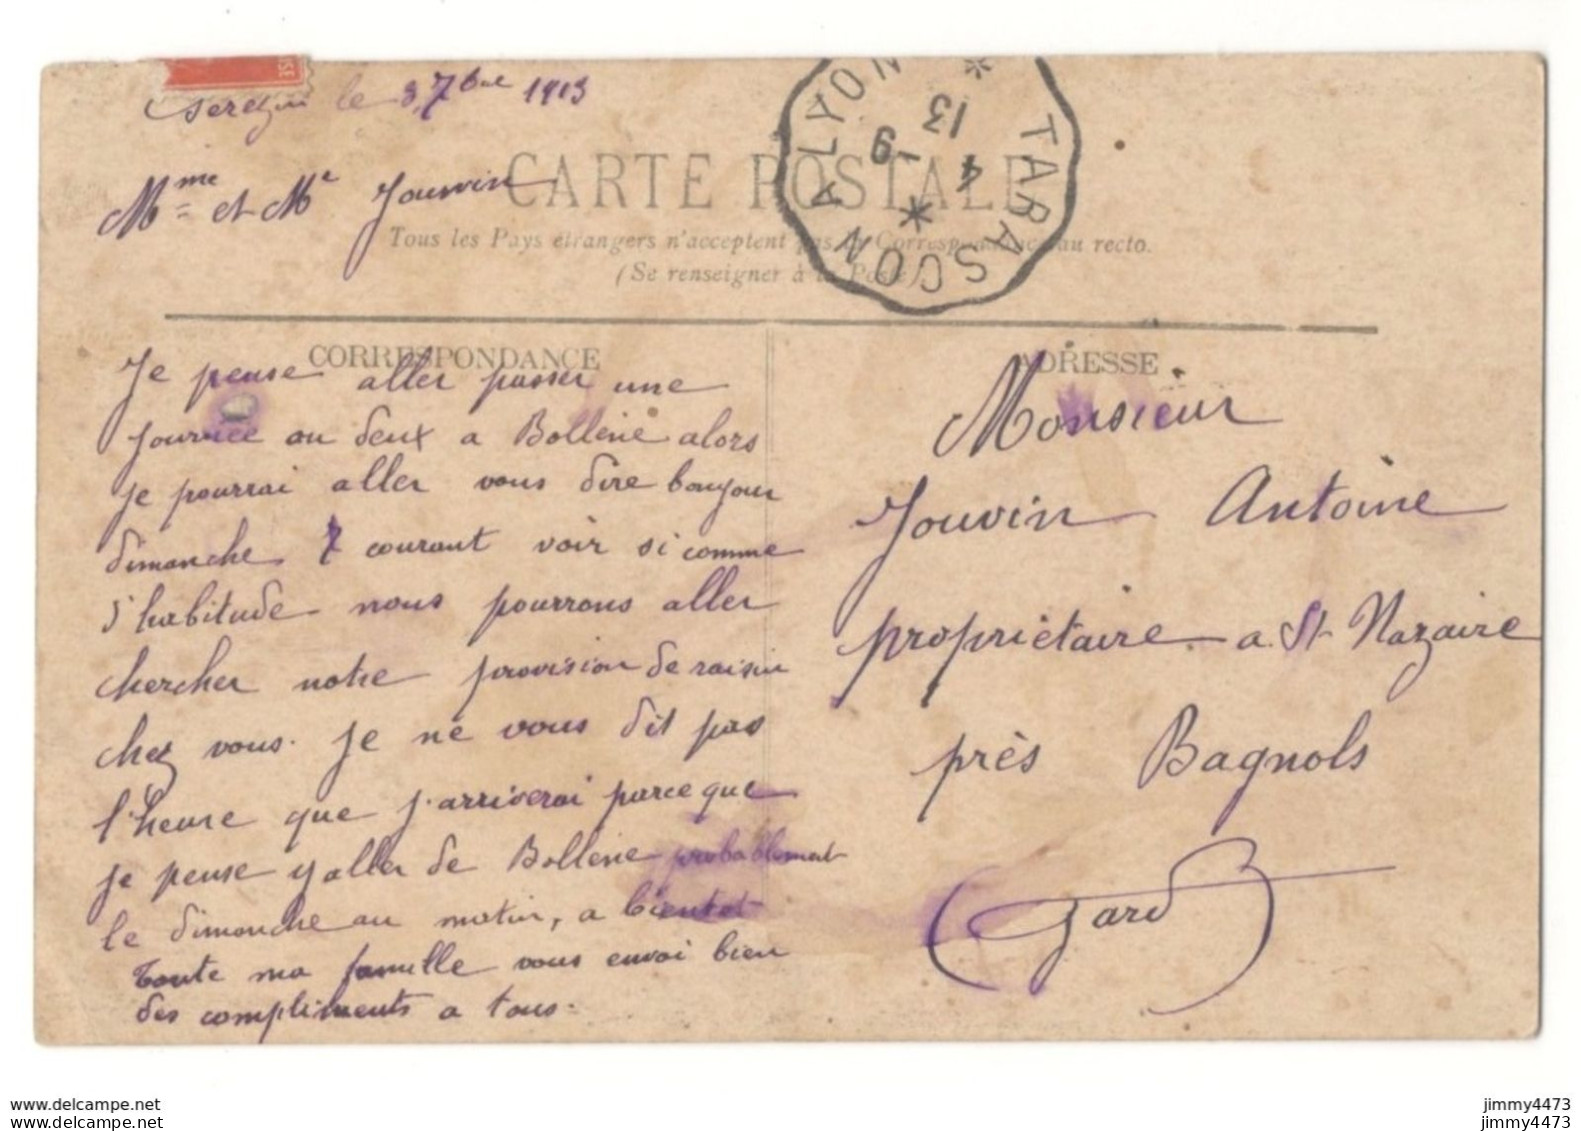 Serezin le 3 7bre 1913
Mme et Mr Jouvin
CARTE POSTALE
Tous les Pays étrangers n'acceptent pas la Correspondance au recto.
(Se renseigner à la Poste).
TARASCON A LYON
4 -9
13
CORRESPONDANCE
Je pense aller passer une
journée ou deux a Bollène alors
je pourrai aller vous dire bonjour
dimanche 7 courant voir si comme
d'habitude nous pourrons aller
chercher notre provision de raisin
chez vous. Je ne vous dit pas
l'heure que j'arriverai parce que
je pense y aller de Bollène probablement
le dimanche au matin, a bientot
Toute ma famille vous envoi bien
des compliments a tous.
ADRESSE
Monsieur
Jouvin Antoine
propriètaire a St Nazaire
près Bagnols
(Gard)
www.delcampe.net
www.delcampe.net
jimmy4473
jimmy4473